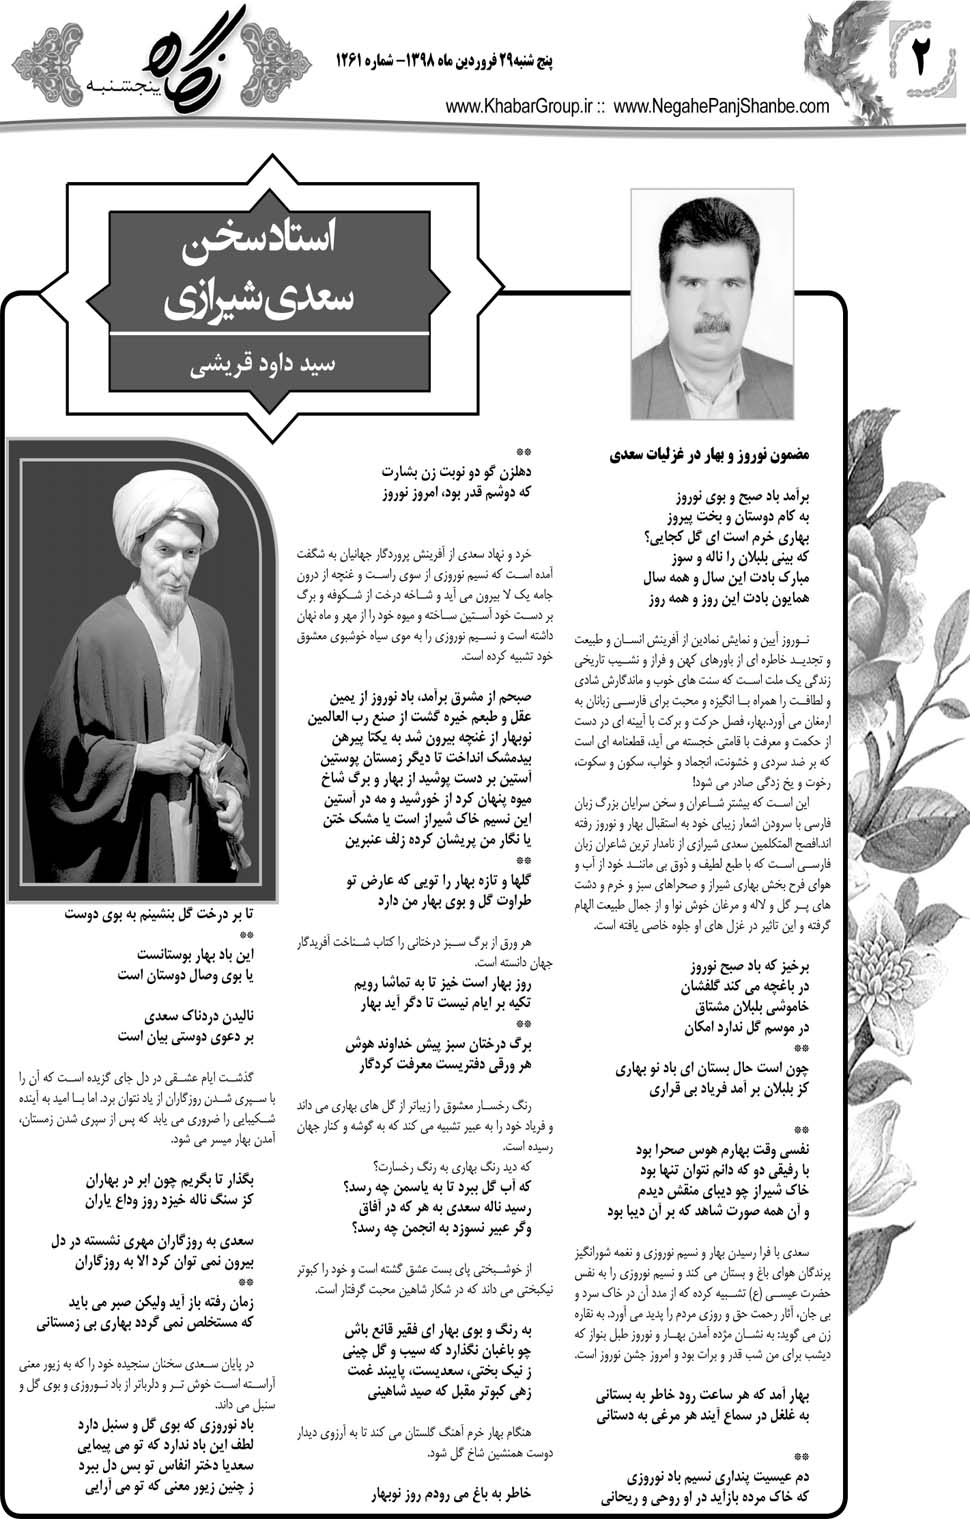 ۲
پنج شنبه۲۹ فروردین ماه ۱۳۹۸- شماره ۱۲۶۱
www.KhabarGroup.ir :: www.NegahePanjShanbe.com
نگاه
پنجشنبه
استاد سخن
سعدی شیرازی
سید داود قریشی
مضمون نوروز و بهار در غزلیات سعدی
برآمد باد صبح و بوی نوروز
به کام دوستان و بخت پیروز
بهاری خرم است ای گل کجایی؟
که بینی بلبلان را ناله و سوز
مبارک بادت این سال و همه سال
همایون بادت این روز و همه روز
نوروز آیین و نمایش نمادین از آفرینش انسان و طبیعت
و تجدید خاطره ای از باورهای کهن و فراز و نشیب تاریخی
زندگی یک ملت است که سنت های خوب و ماندگارش شادی
و لطافت را همراه با انگیزه و محبت برای فارسی زبانان به
ارمغان می آورد.بهار، فصل حرکت و برکت با آیینه ای در دست
از حکمت و معرفت با قامتی خجسته می آید، قطعنامه ای است
که بر ضد سردی و خشونت، انجماد و خواب، سکون و سکوت،
رخوت و یخ زدگی صادر می شود!
این است که بیشتر شاعران و سخن سرایان بزرگ زبان
فارسی با سرودن اشعار زیبای خود به استقبال بهار و نوروز رفته
اند.افصح المتکلمین سعدی شیرازی از نامدار ترین شاعران زبان
فارسی است که با طبع لطیف و ذوق بی مانند خود از آب و
هوای فرح بخش بهاری شیراز و صحراهای سبز و خرم و دشت
های پر گل و لاله و مرغان خوش نوا و از جمال طبیعت الهام
گرفته و این تاثیر در غزل های او جلوه خاصی یافته است.
برخیز که باد صبح نوروز
در باغچه می کند گلفشان
خاموشی بلبلان مشتاق
در موسم گل ندارد امکان
**
چون است حال بستان ای باد نو بهاری
کز بلبلان بر آمد فریاد بی قراری
**
نفسی وقت بهارم هوس صحرا بود
با رفیقی دو که دائم نتوان تنها بود
خاک شیراز چو دیبای منقش دیدم
و آن همه صورت شاهد که بر آن دیبا بود
سعدی با فرا رسیدن بهار و نسیم نوروزی و نغمه شورانگیز
پرندگان هوای باغ و بستان می کند و نسیم نوروزی را به نفس
حضرت عیسی (ع) تشبیه کرده که از مدد آن در خاک سرد و
بی جان، آثار رحمت حق و روزی مردم را پدید می آورد. به نقاره
زن می گوید: به نشان مژده آمدن بهار و نوروز طبل بنواز که
دیشب برای من شب قدر و برات بود و امروز جشن نوروز است.
بهار آمد که هر ساعت رود خاطر به بستانی
به غلغل در سماع آیند هر مرغی به دستانی
**
دم عیسیت پنداری نسیم باد نوروزی
که خاک مرده بازآید در او روحی و ریحانی
**
دهلزن گو دو نوبت زن بشارت
که دوشم قدر بود، امروز نوروز
خرد و نهاد سعدی از آفرینش پروردگار جهانیان به شگفت
آمده است که نسیم نوروزی از سوی راست و غنچه از درون
جامه یک لا بیرون می آید و شاخه درخت از شکوفه و برگ
بر دست خود آستین ساخته و میوه خود را از مهر و ماه نهان
داشته است و نسیم نوروزی را به موی سیاه خوشبوی معشوق
خود تشبیه کرده است.
صبحم از مشرق برآمد، باد نوروز از یمین
عقل و طبعم خیره گشت از صنع رب العالمین
نوبهار از غنچه بیرون شد به یکتا پیرهن
بیدمشک انداخت تا دیگر زمستان پوستین
آستین بر دست پوشید از بهار و برگ شاخ
میوه پنهان کرد از خورشید و مه در آستین
این نسیم خاک شیراز است یا مشک ختن
یا نگار من پریشان کرده زلف عنبرین
**
گلها و تازه بهار را تویی که عارض تو
طراوت گل و بوی بهار من دارد
هر ورق از برگ سبز درختانی را کتاب شناخت آفریدگار
جهان دانسته است.
روز بهار است خیز تا به تماشا رویم
تکیه بر ایام نیست تا دگر آید بهار
**
برگ درختان سبز پیش خداوند هوش
هر ورقی دفتریست معرفت کردگار
رنگ رخسار معشوق را زیباتر از گل های بهاری می داند
و فریاد خود را به عبیر تشبیه می کند که به گوشه و کنار جهان
رسیده است.
که دید رنگ بهاری به رنگ رخسارت؟
که آب گل ببرد تا به یاسمن چه رسد؟
رسید ناله سعدی به هر که در آفاق
وگر عبیر نسوزد به انجمن چه رسد؟
از خوشبختی پای بست عشق گشته است و خود را کبوتر
نیکبختی می داند که در شکار شاهین محبت گرفتار است.
به رنگ و بوی بهار ای فقیر قانع باش
چو باغبان نگذارد که سیب و گل چینی
ز نیک بختی، سعدیست، پایبند غمت
زهی کبوتر مقبل که صید شاهینی
هنگام بهار خرم آهنگ گلستان می کند تا به آرزوی دیدار
دوست همنشین شاخ گل شود.
خاطر به باغ می رودم روز نوبهار
تا بر درخت گل بنشینم به بوی دوست
**
این باد بهار بوستانست
یا بوی وصال دوستان است
نالیدن دردناک سعدی
بر دعوی دوستی بیان است
گذشت ایام عشقی در دل جای گزیده است که آن را
با سپری شدن روزگاران از یاد نتوان برد. اما با امید به آینده
شکیبایی را ضروری می یابد که پس از سپری شدن زمستان،
آمدن بهار میسر می شود.
بگذار تا بگریم چون ابر در بهاران
کز سنگ ناله خیزد روز وداع یاران
سعدی به روزگاران مهری نشسته در دل
بیرون نمی توان کرد الا به روزگاران
**
زمان رفته باز آید ولیکن صبر می باید
که مستخلص نمی گردد بهاری بی زمستانی
در پایان سعدی سخنان سنجیده خود را که به زیور معنی
آراسته است خوش تر و دلرباتر از باد نوروزی و بوی گل و
سنبل می داند.
باد نوروزی که بوی گل و سنبل دارد
لطف این باد ندارد که تو می پیمایی
سعدیا دختر انفاس تو بس دل ببرد
ز چنین زیور معنی که تو می آرایی